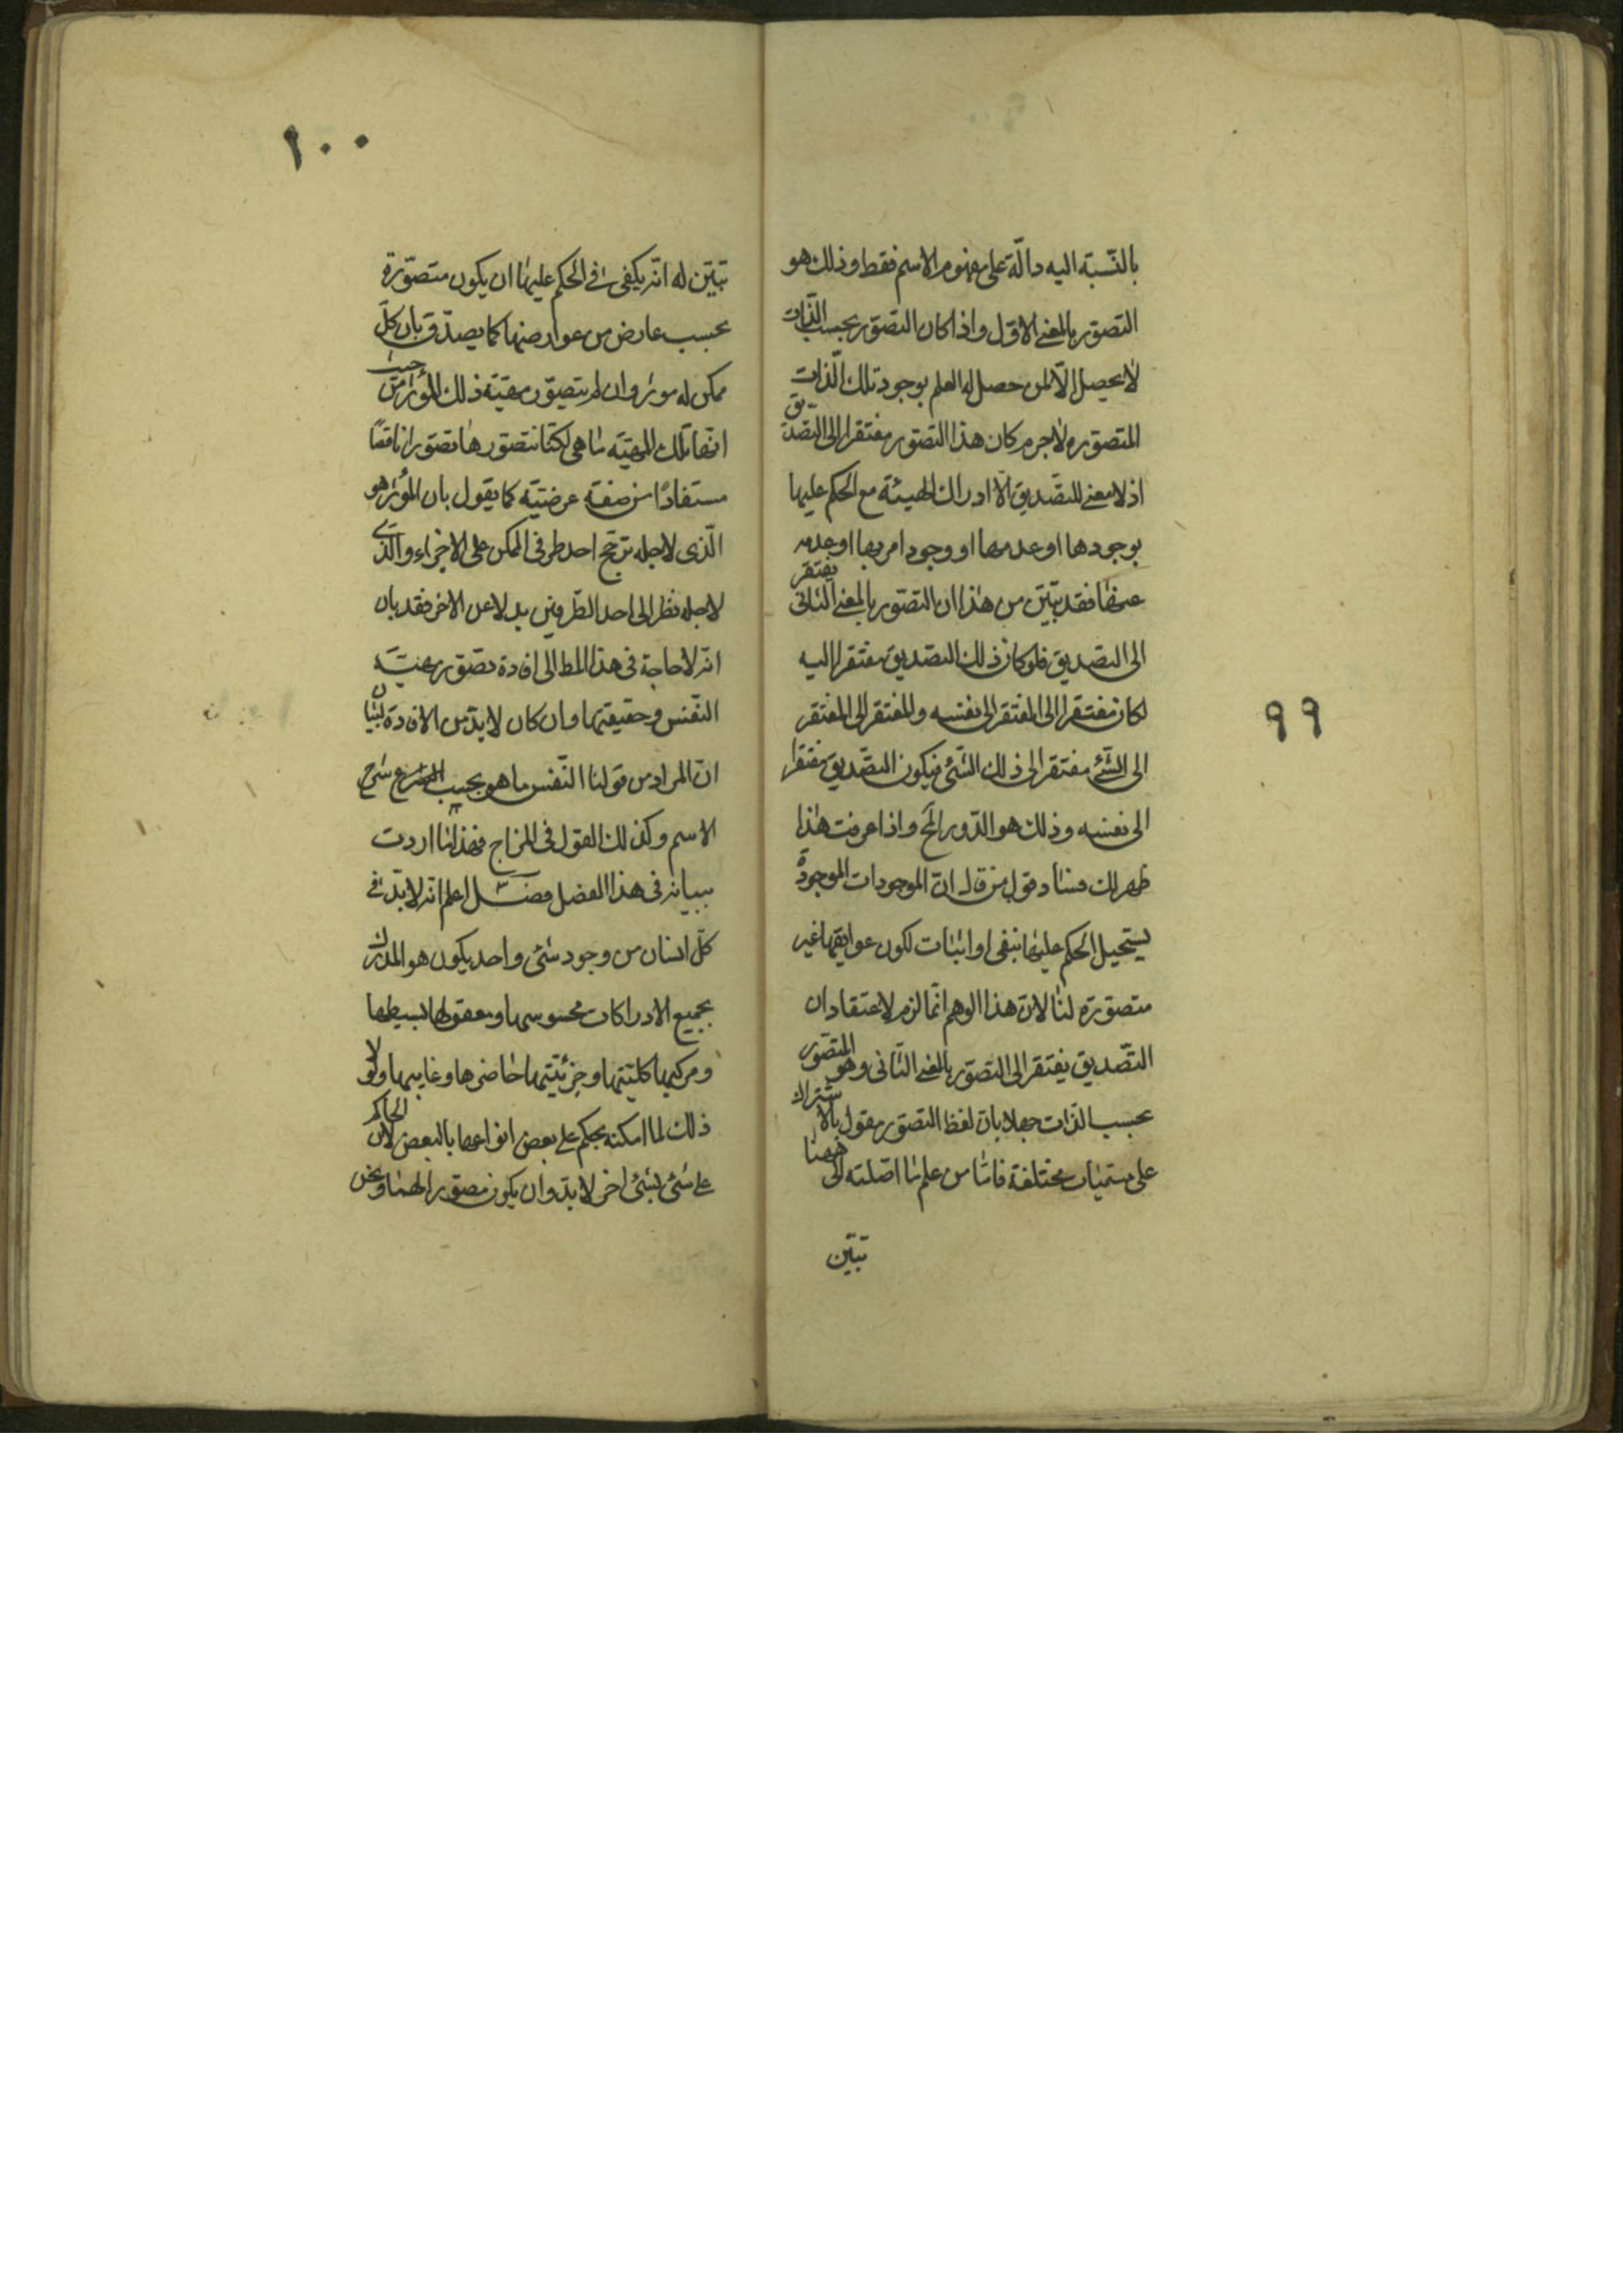 ٩٩
بالنّسبة اليه دالّة على مفهوم الاسم فقط وذلك هو
التصوّر بالمعنى الاوّل واذا كان التصوّر بحسب الذّات
لا يحصل الّا لمن حصل له العلم بوجود تلك الذّات
المتصوّره لاجرم كان هذا التصوّر مفتقرا الى التّصديق
اذ لا معنى للتصّديق الّا ادراك الهيئة مع الحكم عليها
بوجودها او عدمها او وجود امر بها او عدمه
عنها فقد تبيّن من هذا ان التصوّر بالمعنى الثانى يفتقر
الى التصديق فلو كان ذلك التصديق مفتقرا اليه
لكان مفتقرا الى المفتقر الى نفسه والمفتقر الى المفتقر
الى الشّئ مفتقر الى ذلك الشّئ فيكون التصّديق مفتقرا
الى نفسه وذلك هو الدّور المح واذا عرفت هذا
ظهر لك فساد قول من قال انّ الموجودات الموجودة
يستحيل الحكم عليها بنفى او اثبات لكون عوايقها غير
متصوّرة لنا لانّ هذا الوهم انّما لزم لاعتقاد ان
التّصديق يفتقر الى التصوّر بالمعنى الثّانى وهو المتصور
بحسب الذات جهلا بانّ لفظ التصوّر مقول بالاشتراك
على مسميات مختلفة فامّا من علم ما اصّلته الى ههنا
تبيّن
١٠٠
تبيّن له انّه يكفى فى الحكم عليها ان يكون متصوّرة
بحسب عارض من عوارضها كما يصدّق بان كلّ
ممكن له موثر وان لم يتصوّر مهيّة ذلك المؤثر من حيث
انّها تلك المهيّة ما هى لكنّا نتصوّرها تصوّرا ناقصًا
مستفادًا من صفة عرضيّة كما يقول بان المؤثر هو
الّذى لاجله ترجّح احد طرفى الممكن على الاخر او الّذى
لاجله نظر الى احد الطرفين بدلا عن الاخر فقد بان
انّه لا حاجة فى هذا المط الى افادة تصوّر مهيّة
النّفس وحقيقتها وان كان لا بدّ من الافادة لبيان
انّ المراد من قولنا النّفس ما هو بحسب شرح
الاسم وكذلك القول فى المزاج فهذا ما اردت
بيانه فى هذا الفصل فصل اعلم انّه لا بدّ فى
كلّ انسان من وجود شئ واحد يكون هو المدرك
بجميع الادراكات محسوسها ومعقولها بسيطها
ومركبها كليّتها وجزئيّتها حاضرها وغايبها ولولا
ذلك لما امكنه يحكم على بعض انواعها بالبعض لان الحاكم
على شئ بشئ اخر لا بدّ وان يكون متصوّرا لهما ونحن